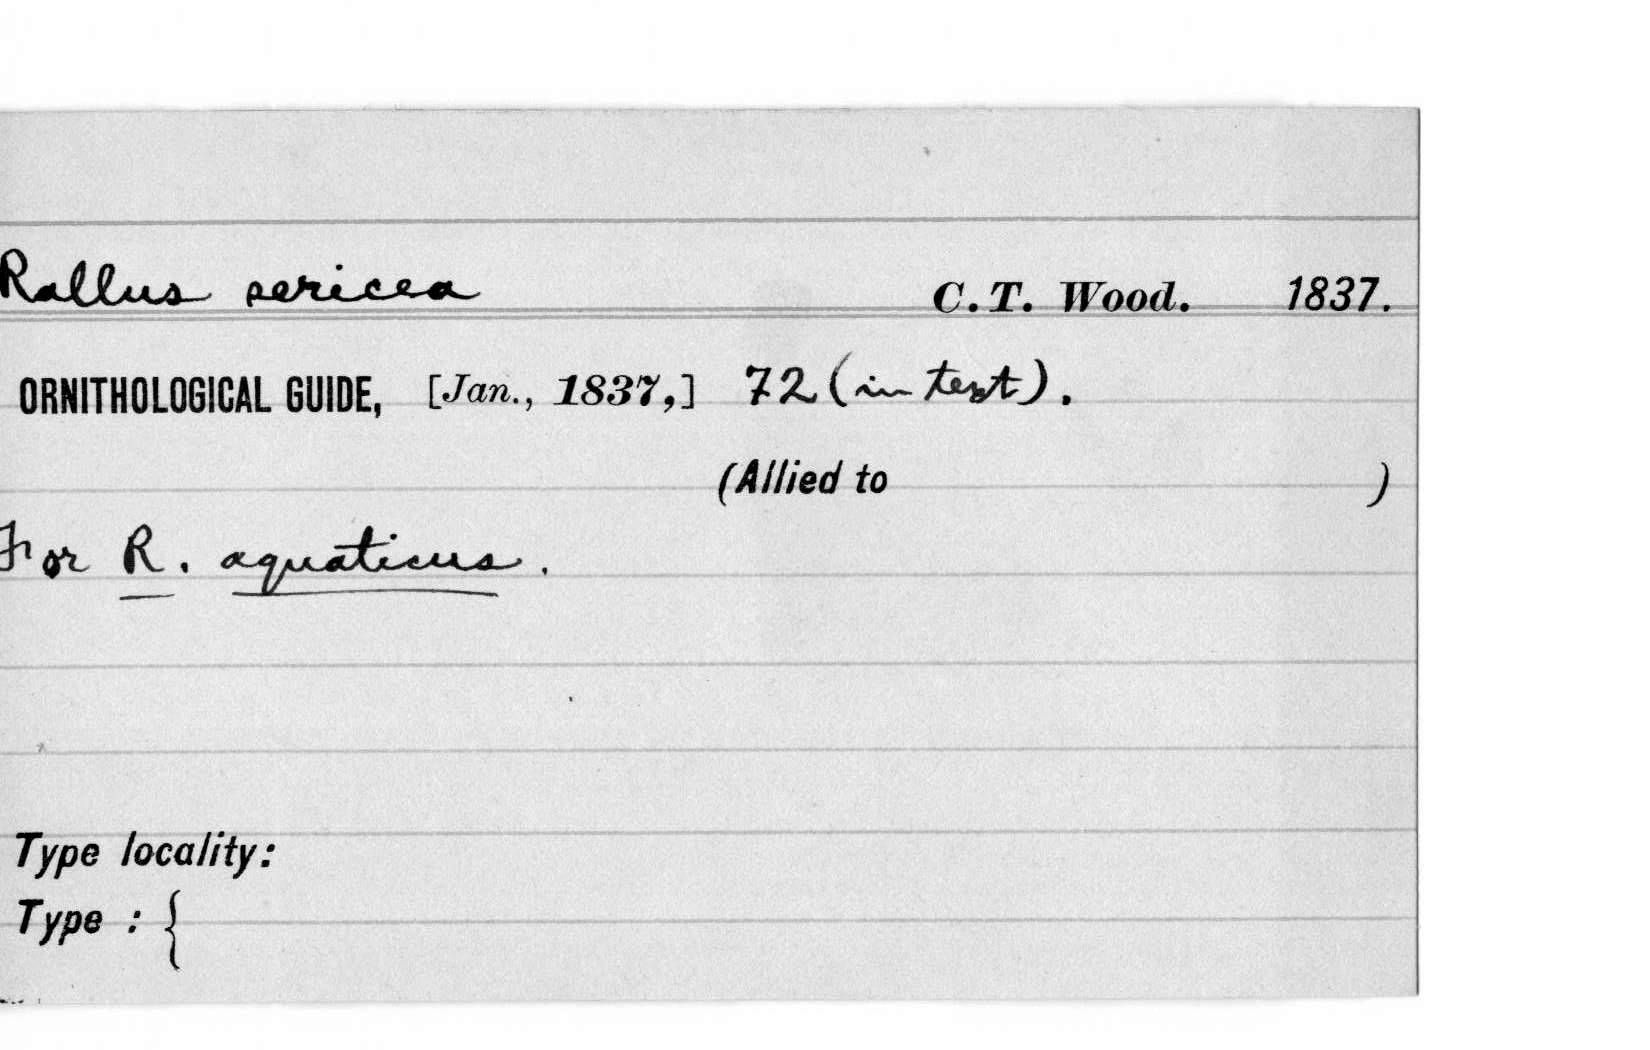 Rallus sericea C. T. Wood. 1837.
ORNITHOLOGICAL GUIDE, [Jan., 1837,] 72 (in text).
(Allied to )
For R. aquaticus.
Type locality:
Type : {